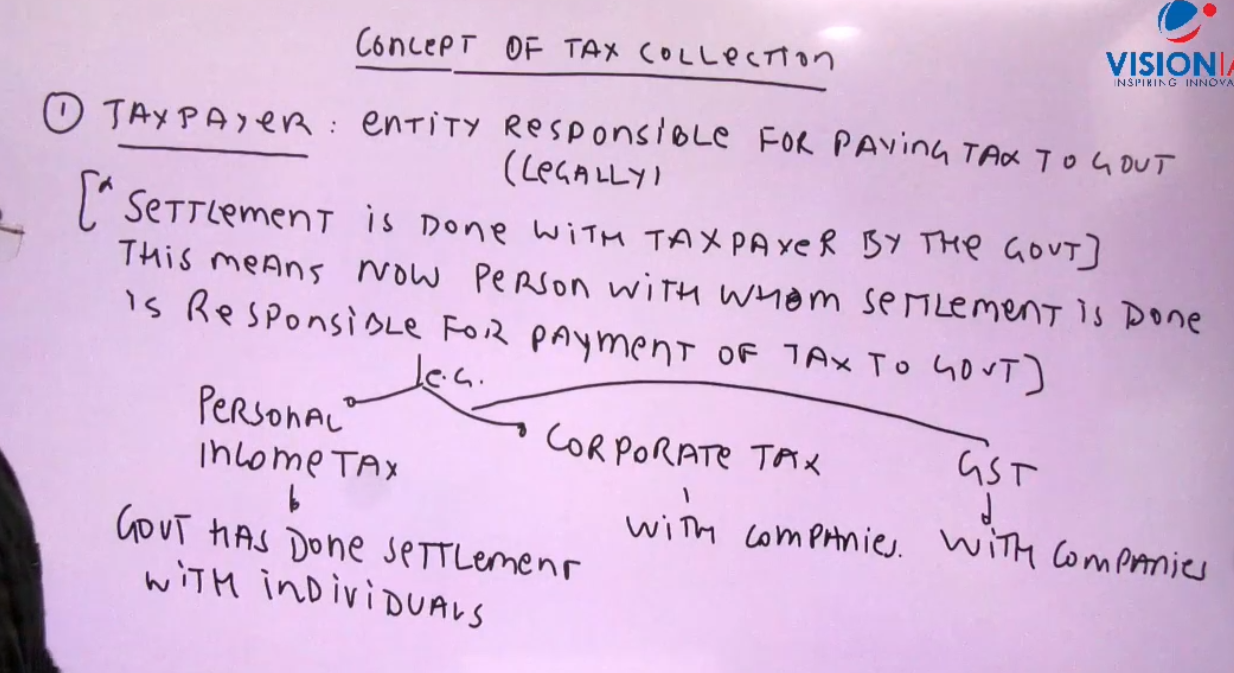 CONCEPT OF TAX COLLECTION
VISIONIA
INSPIRING INNOVA
① TAXPAYER : ENTITY RESPONSIBLE FOR PAYING TAX TO GOVT
(LEGALLY)
[* SETTLEMENT IS DONE WITH TAXPAYER BY THE GOVT]
THIS MEANS NOW PERSON WITH WHOM SETTLEMENT IS DONE
IS RESPONSIBLE FOR PAYMENT OF TAX TO GOVT]
e.G.
PERSONAL
INCOME TAX
CORPORATE TAX
GST
GOVT HAS DONE SETTLEMENT
WITH INDIVIDUALS
WITH COMPANIES.
WITH COMPANIES